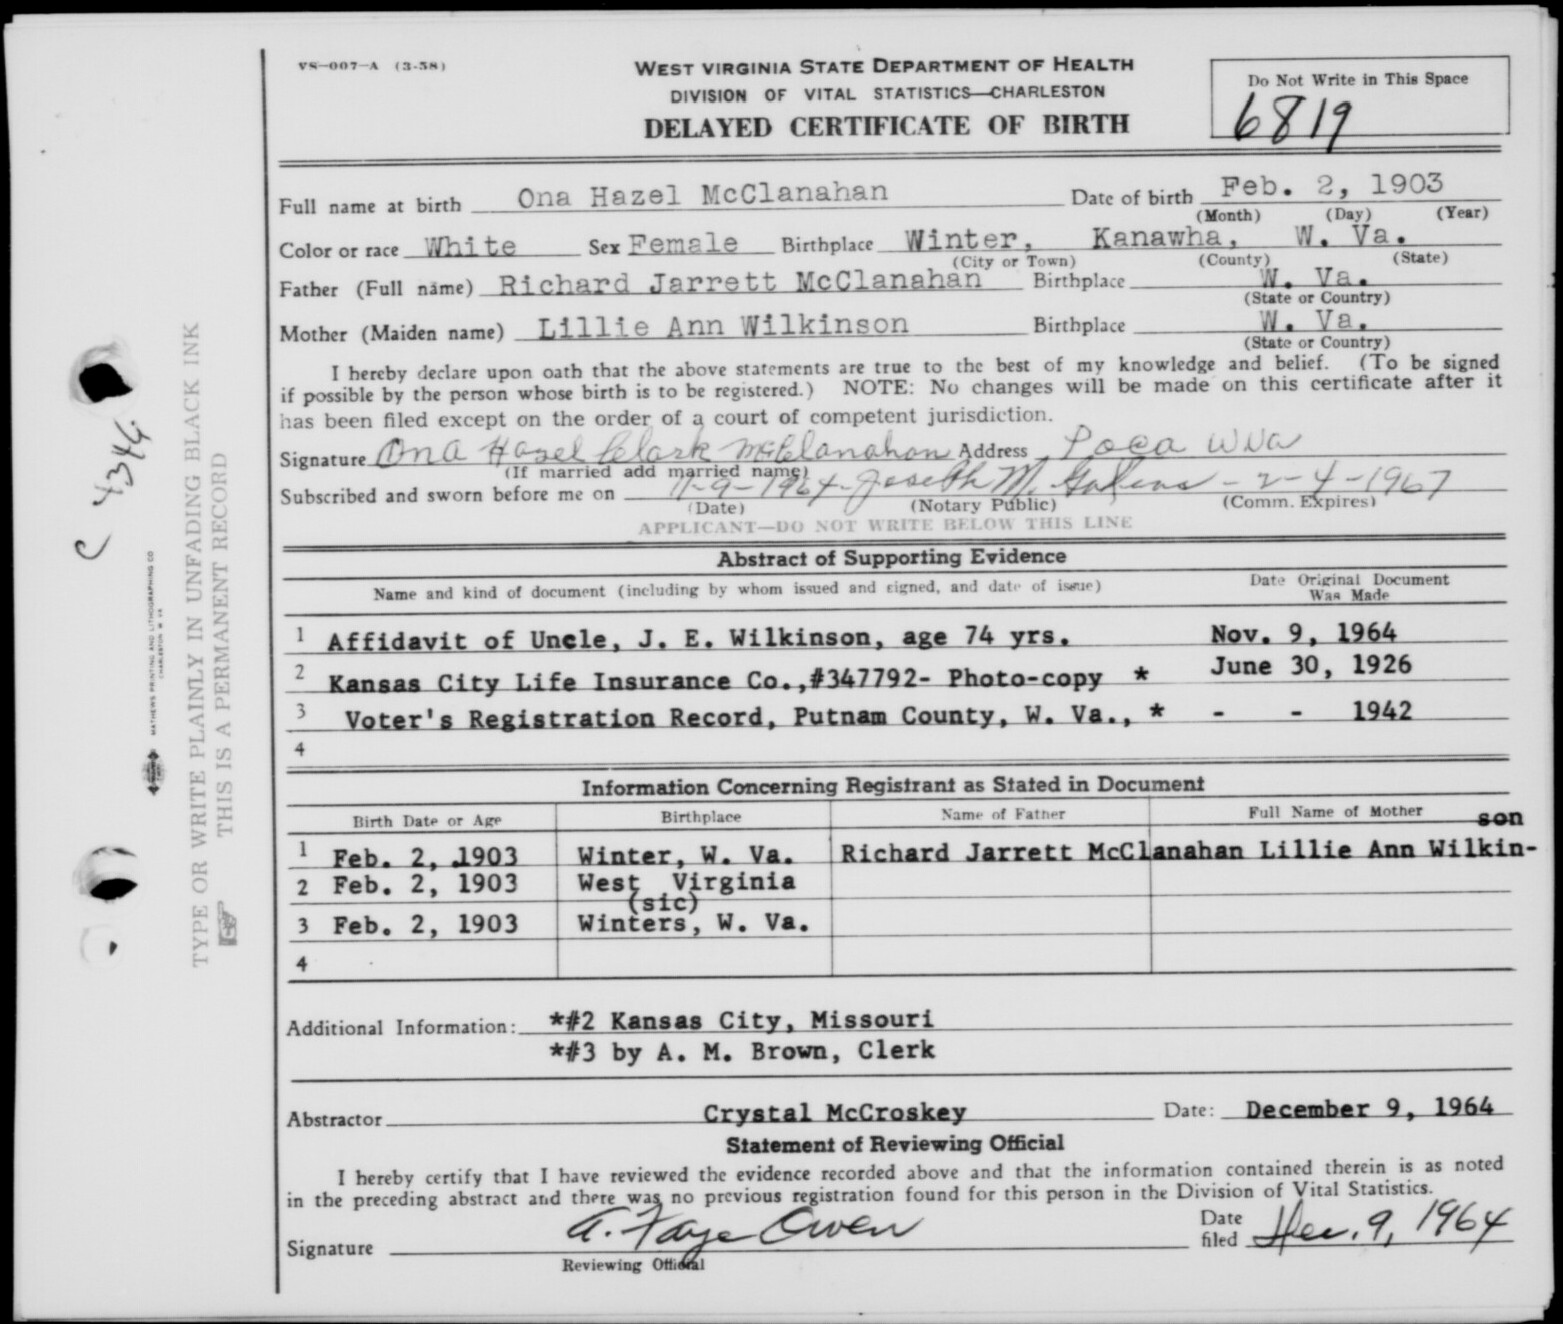 VS-007-A (3-58)
WEST VIRGINIA STATE DEPARTMENT OF HEALTH
DIVISION OF VITAL STATISTICS—CHARLESTON
DELAYED CERTIFICATE OF BIRTH
Do Not Write in This Space
6819
Full name at birth Ona Hazel McClanahan Date of birth Feb. 2, 1903
(Month) (Day) (Year)
Color or race White Sex Female Birthplace Winter, Kanawha, W. Va.
(City or Town) (County) (State)
Father (Full name) Richard Jarrett McClanahan Birthplace W. Va.
(State or Country)
Mother (Maiden name) Lillie Ann Wilkinson Birthplace W. Va.
(State or Country)
I hereby declare upon oath that the above statements are true to the best of my knowledge and belief. (To be signed
if possible by the person whose birth is to be registered.) NOTE: No changes will be made on this certificate after it
has been filed except on the order of a court of competent jurisdiction.
Signature Ona Hazel Clark McClanahan Address Poca W Va
(If married add married name)
Subscribed and sworn before me on 11-9-1964- Joseph M. - 2-4-1967
(Date) (Notary Public) (Comm. Expires)
APPLICANT—DO NOT WRITE BELOW THIS LINE
Abstract of Supporting Evidence
Name and kind of document (including by whom issued and signed, and date of issue) Date Original Document
Was Made
1 Affidavit of Uncle, J. E. Wilkinson, age 74 yrs. Nov. 9, 1964
2 Kansas City Life Insurance Co.,#347792- Photo-copy * June 30, 1926
3 Voter's Registration Record, Putnam County, W. Va., * - - 1942
4
Information Concerning Registrant as Stated in Document
Birth Date or Age Birthplace Name of Father Full Name of Mother
son
1 Feb. 2, 1903 Winter, W. Va. Richard Jarrett McClanahan Lillie Ann Wilkin-
2 Feb. 2, 1903 West Virginia
(sic)
3 Feb. 2, 1903 Winters, W. Va.
4
Additional Information: *#2 Kansas City, Missouri
*#3 by A. M. Brown, Clerk
Abstractor Crystal McCroskey Date: December 9, 1964
Statement of Reviewing Official
I hereby certify that I have reviewed the evidence recorded above and that the information contained therein is as noted
in the preceding abstract and there was no previous registration found for this person in the Division of Vital Statistics.
Signature A. Faye Owen Date filed Dec. 9, 1964
Reviewing Official
TYPE OR WRITE PLAINLY IN UNFADING BLACK INK
THIS IS A PERMANENT RECORD
MATHEWS PRINTING AND LITHOGRAPHING CO
CHARLESTON W VA
C 4344